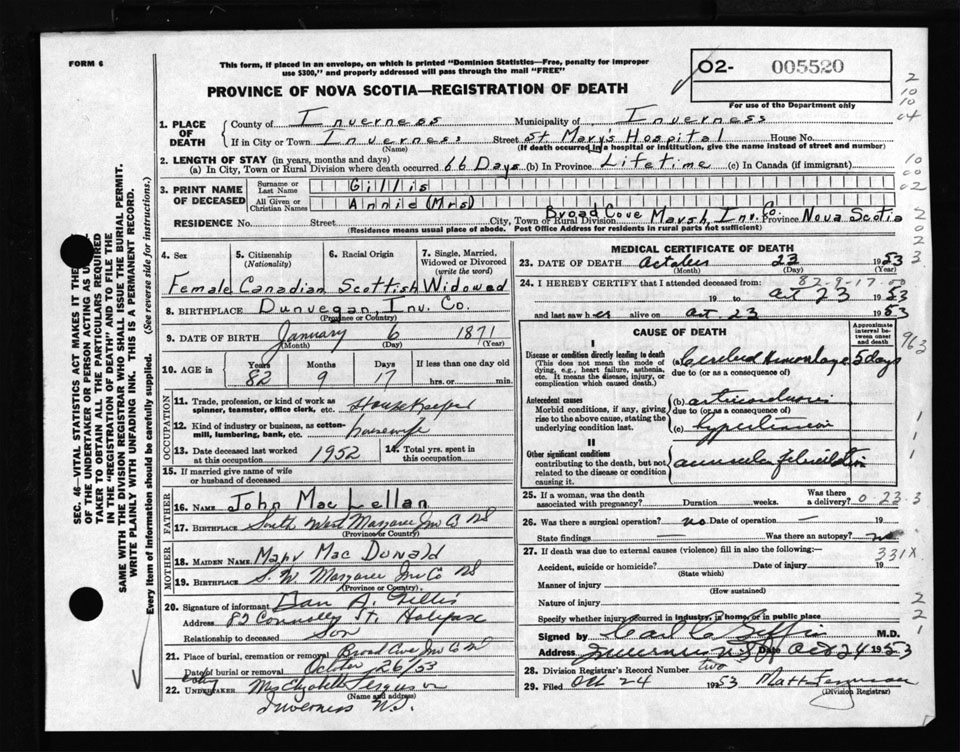 FORM 6
This form, if placed in an envelope, on which is printed "Dominion Statistics—Free, penalty for improper
use $300," and properly addressed will pass through the mail "FREE"
O2- 005520
For use of the Department only
PROVINCE OF NOVA SCOTIA—REGISTRATION OF DEATH
1. PLACE OF DEATH
County of Inverness Municipality of Inverness
If in City or Town Inverness Street St Mary's Hospital House No.
(Name) (If death occurred in a hospital or institution, give the name instead of street and number)
2. LENGTH OF STAY (in years, months and days)
(a) In City, Town or Rural Division where death occurred 66 Days (b) In Province Lifetime (c) In Canada (if immigrant)
3. PRINT NAME OF DECEASED
Surname or Last Name Gillis
All Given or Christian Names Annie (Mrs)
RESIDENCE No. Street City, Town or Rural Division Broad Cove Marsh, Inv. Co Province Nova Scotia
(Residence means usual place of abode. Post Office Address for residents in rural parts not sufficient)
4. Sex 5. Citizenship (Nationality) 6. Racial Origin 7. Single, Married, Widowed or Divorced (write the word)
Female Canadian Scottish Widowed
8. BIRTHPLACE Dunvegan, Inv. Co.
(Province or Country)
9. DATE OF BIRTH January 6 1871
(Month) (Day) (Year)
10. AGE in Years Months Days If less than one day old
82 9 17 hrs. or min.
OCCUPATION
11. Trade, profession, or kind of work as spinner, teamster, office clerk, etc. Housekeeper
12. Kind of industry or business, as cotton-mill, lumbering, bank, etc. housewife
13. Date deceased last worked at this occupation 1952 14. Total yrs. spent in this occupation
15. If married give name of wife or husband of deceased
FATHER
16. NAME John MacLellan
17. BIRTHPLACE South West Margaree Inv Co NS
(Province or Country)
MOTHER
18. MAIDEN NAME Mary MacDonald
19. BIRTHPLACE S. W. Margaree Inv Co NS
(Province or Country)
20. Signature of informant Dan A. Gillis
Address 82 Connolly St. Halifax
Relationship to deceased Son
21. Place of burial, cremation or removal Broad Cove Inv Co NS
Date of burial or removal October 26/53
22. UNDERTAKER Mrs Elizabeth Ferguson
(Name and address)
Inverness N.S.
MEDICAL CERTIFICATE OF DEATH
23. DATE OF DEATH October 23 1953
(Month) (Day) (Year)
82-9-17-00
24. I HEREBY CERTIFY that I attended deceased from:
19 to Oct 23 1953
and last saw her alive on Oct 23 1953
CAUSE OF DEATH
Approximate interval between onset and death
I
Disease or condition directly leading to death
(This does not mean the mode of dying, e.g., heart failure, asthenia, etc. It means the disease, injury, or complication which caused death.)
(a) Cerebral hemorrhage 5 days
due to (or as a consequence of)
Antecedent causes
Morbid conditions, if any, giving rise to the above cause, stating the underlying condition last.
(b)
due to (or as a consequence of)
(c) hypertension
II
Other significant conditions
contributing to the death, but not related to the disease or condition causing it.
auricular fibrillation
25. If a woman, was the death associated with pregnancy? Duration weeks. Was there a delivery? 0 23.3
26. Was there a surgical operation? no Date of operation — 19
State findings — Was there an autopsy? no
27. If death was due to external causes (violence) fill in also the following:— 331X
Accident, suicide or homicide? Date of injury 19
(State which)
Manner of injury
(How sustained)
Nature of injury
Specify whether injury occurred in industry, in home, or in public place
Signed by M.D.
Address Inverness N.S. Date Oct 24 1953
28. Division Registrar's Record Number two
29. Filed Oct 24 1953 Matt Ferguson
(Division Registrar)
SEC. 46—VITAL STATISTICS ACT MAKES IT THE
OF THE UNDERTAKER OR PERSON ACTING AS
TAKER TO OBTAIN ALL THE PARTICULARS REQUIRED
IN THE "REGISTRATION OF DEATH" AND TO FILE THE
SAME WITH THE DIVISION REGISTRAR WHO SHALL ISSUE THE BURIAL PERMIT.
WRITE PLAINLY WITH UNFADING INK. THIS IS A PERMANENT RECORD.
Every item of information should be carefully supplied. (See reverse side for instructions.)
2
10
10
04
10
00
02
2
02
02
3
963
1
1
1
2
2
1